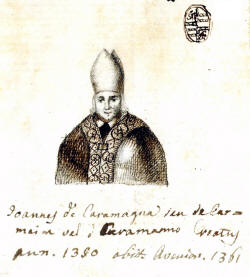 Joannes de Caramagna seu de Car=
main vel d Caramanno Creatus
ann. 1350 obiit Avenion. 1361